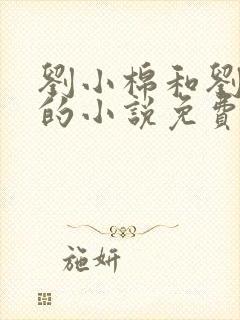 劉小棉和劉
的小說免費
施妍